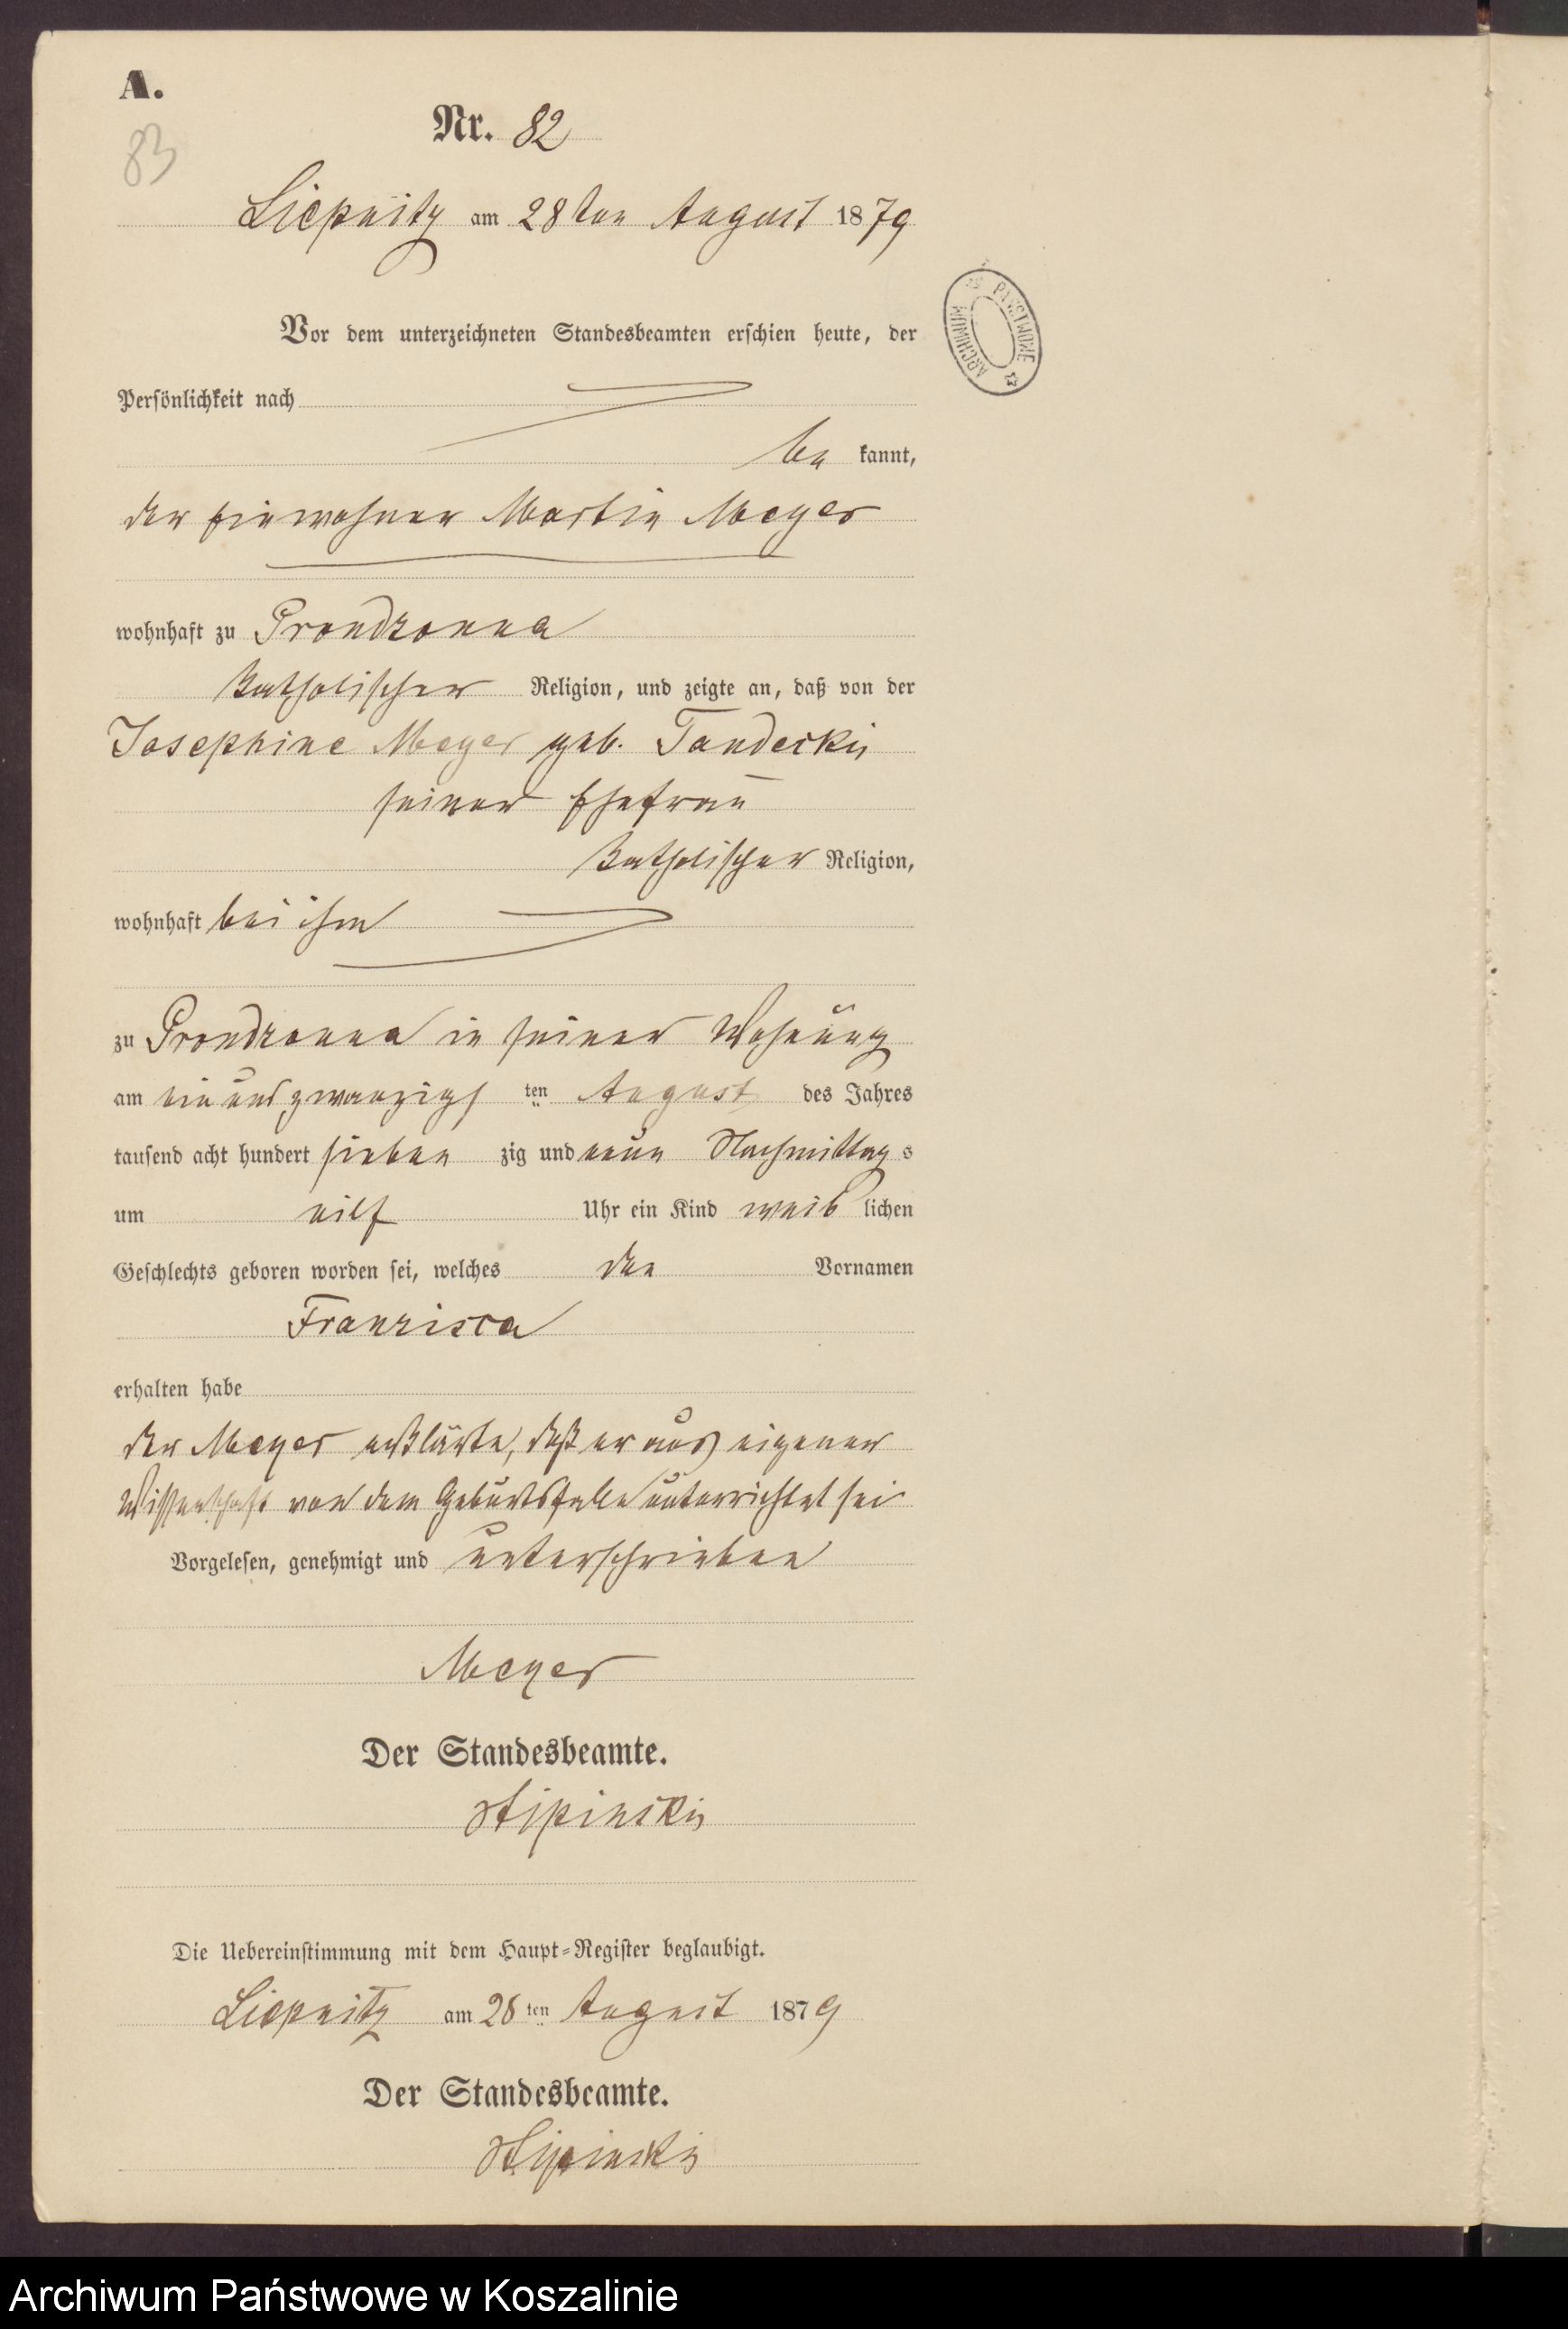 A.
83
Nr. 82
Liepnitz am 28ten August 1879
PAŃSTWOWE
ARCHIWUM
Vor dem unterzeichneten Standesbeamten erschien heute, der
Persönlichkeit nach
be kannt,
der Einwohner Martin Meyer
wohnhaft zu Prondzonna
katholischer Religion, und zeigte an, daß von der
Josephine Meyer geb. Tandecki
seiner Ehefrau
katholischer Religion,
wohnhaft bei ihm
zu Prondzonna in seiner Wohnung
am ein und zwanzigs ten August des Jahres
tausend acht hundert sieben zig und neun Nachmittag s
um eilf Uhr ein Kind weib lichen
Geschlechts geboren worden sei, welches den Vornamen
Franzisca
erhalten habe
der Meyer erklärte, daß er aus eigener
Wissenschaft von dem Geburtsfalle unterrichtet sei
Vorgelesen, genehmigt und unterschrieben
Meyer
Der Standesbeamte.
Die Uebereinstimmung mit dem Haupt-Register beglaubigt.
Liepnitz am 28 ten August 1879
Der Standesbeamte.
Archiwum Państwowe w Koszalinie